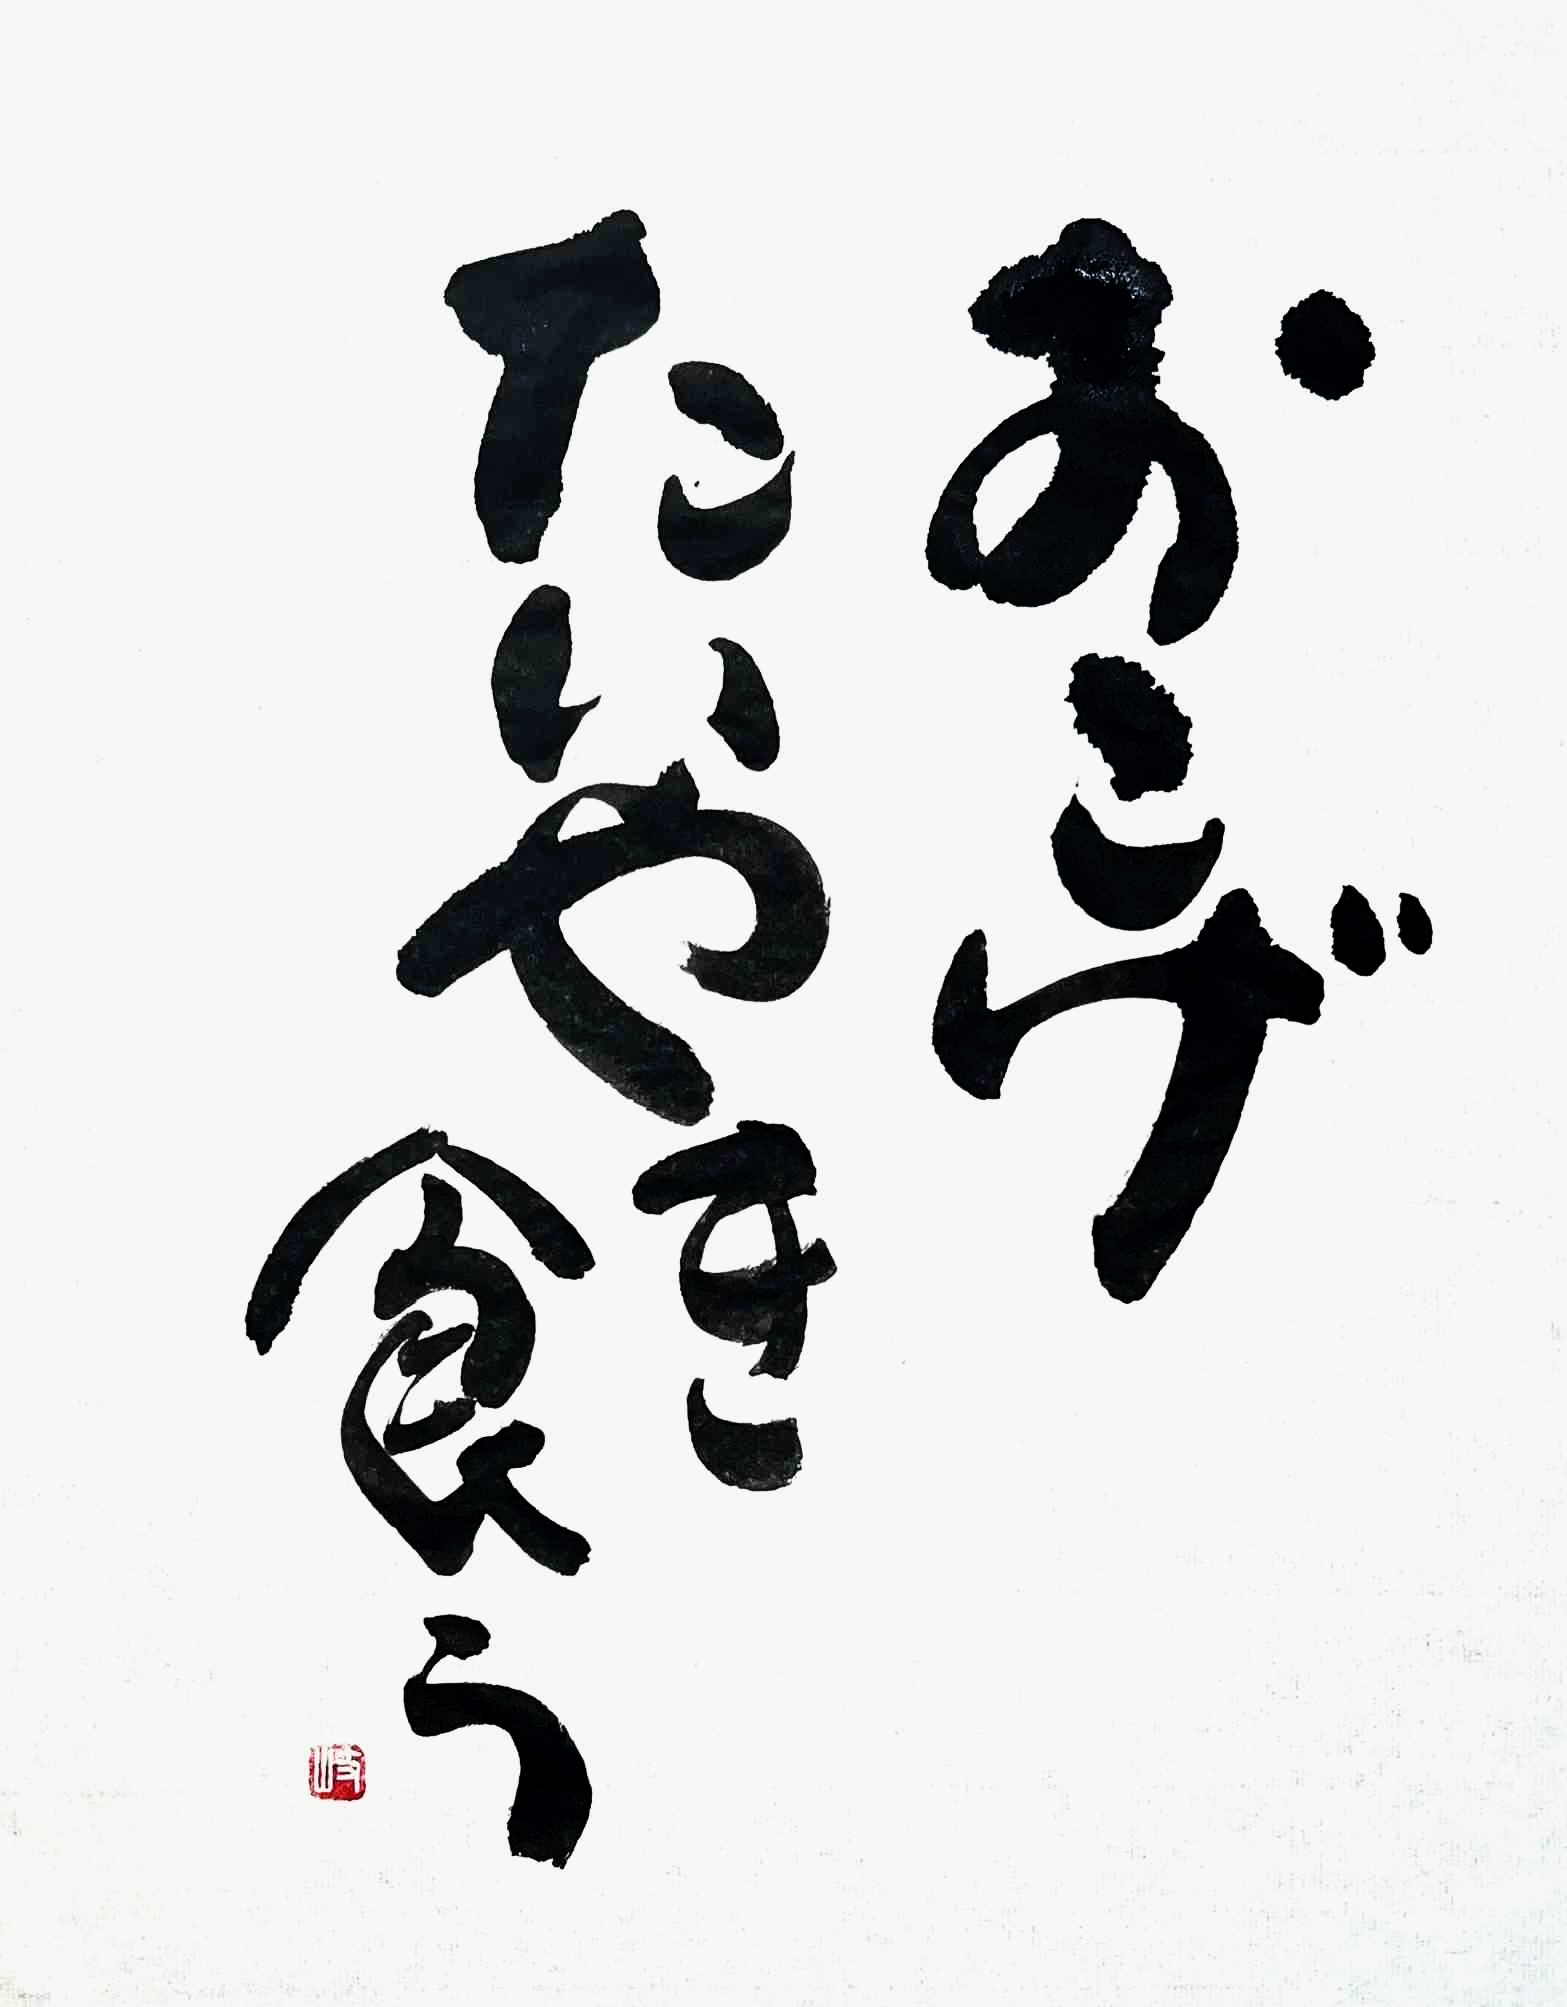 おこげ
たいやき
食う
岐